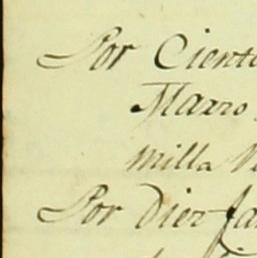 Por Ciento
Marro
milla
Por Diez